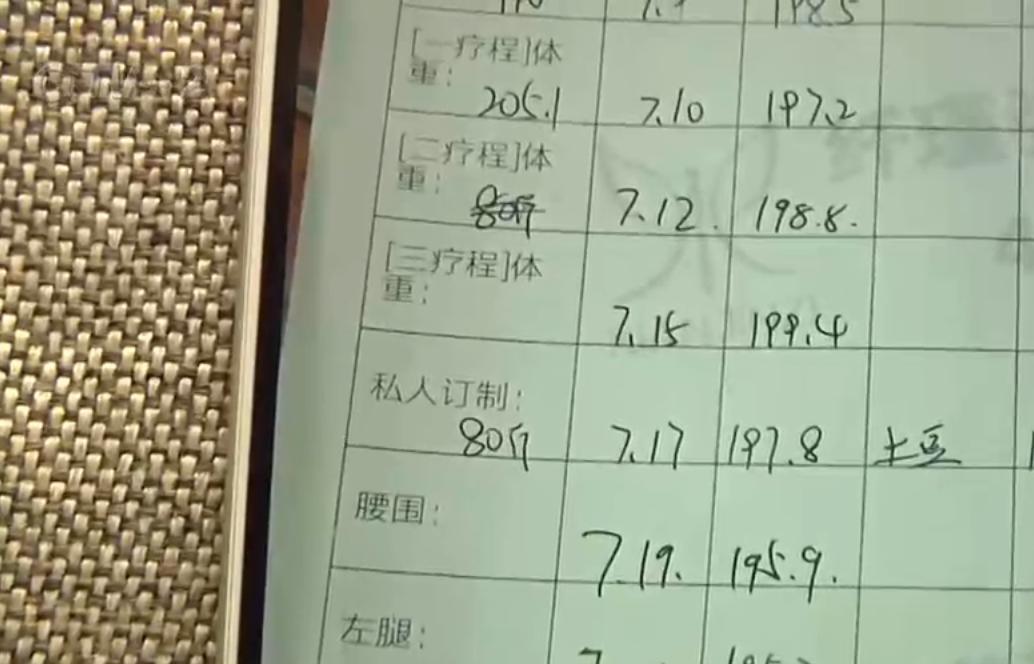 198.5
[一疗程]体
重:
205.1 7.10 197.2
[二疗程]体
重:
80斤 7.12. 198.8.
[三疗程]体
重:
7.15 199.4
私人订制:
80斤 7.17 197.8 土豆
腰围:
7.19. 195.9.
左腿: